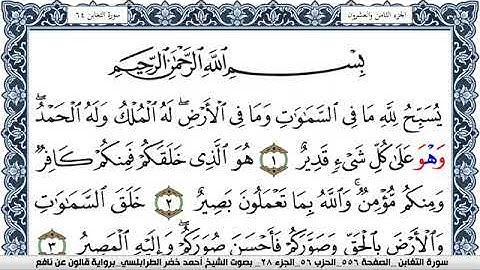 الجزء الثامن والعشرون سورة التغابن ٦٤
بِسْمِ اللَّهِ الرَّحْمَٰنِ الرَّحِيمِ
يُسَبِّحُ لِلَّهِ مَا فِي السَّمَٰوَٰتِ وَمَا فِي الْأَرْضِ لَهُ الْمُلْكُ وَلَهُ الْحَمْدُ
وَهْوَ عَلَىٰ كُلِّ شَيْءٍ قَدِيرٌ ١ هُوَ الَّذِي خَلَقَكُمْ فَمِنكُمْ كَافِرٌ
وَمِنكُم مُّؤْمِنٌ وَاللَّهُ بِمَا تَعْمَلُونَ بَصِيرٌ ٢ خَلَقَ السَّمَٰوَٰتِ
وَالْأَرْضَ بِالْحَقِّ وَصَوَّرَكُمْ فَأَحْسَنَ صُوَرَكُمْ وَإِلَيْهِ الْمَصِيرُ ٣
سورة التغابن _الصفحة ٥٥٦_الحزب ٥٦_الجزء ٢٨_ بصوت الشيخ أحمد خضر الطرابلسي_برواية قالون عن نافع